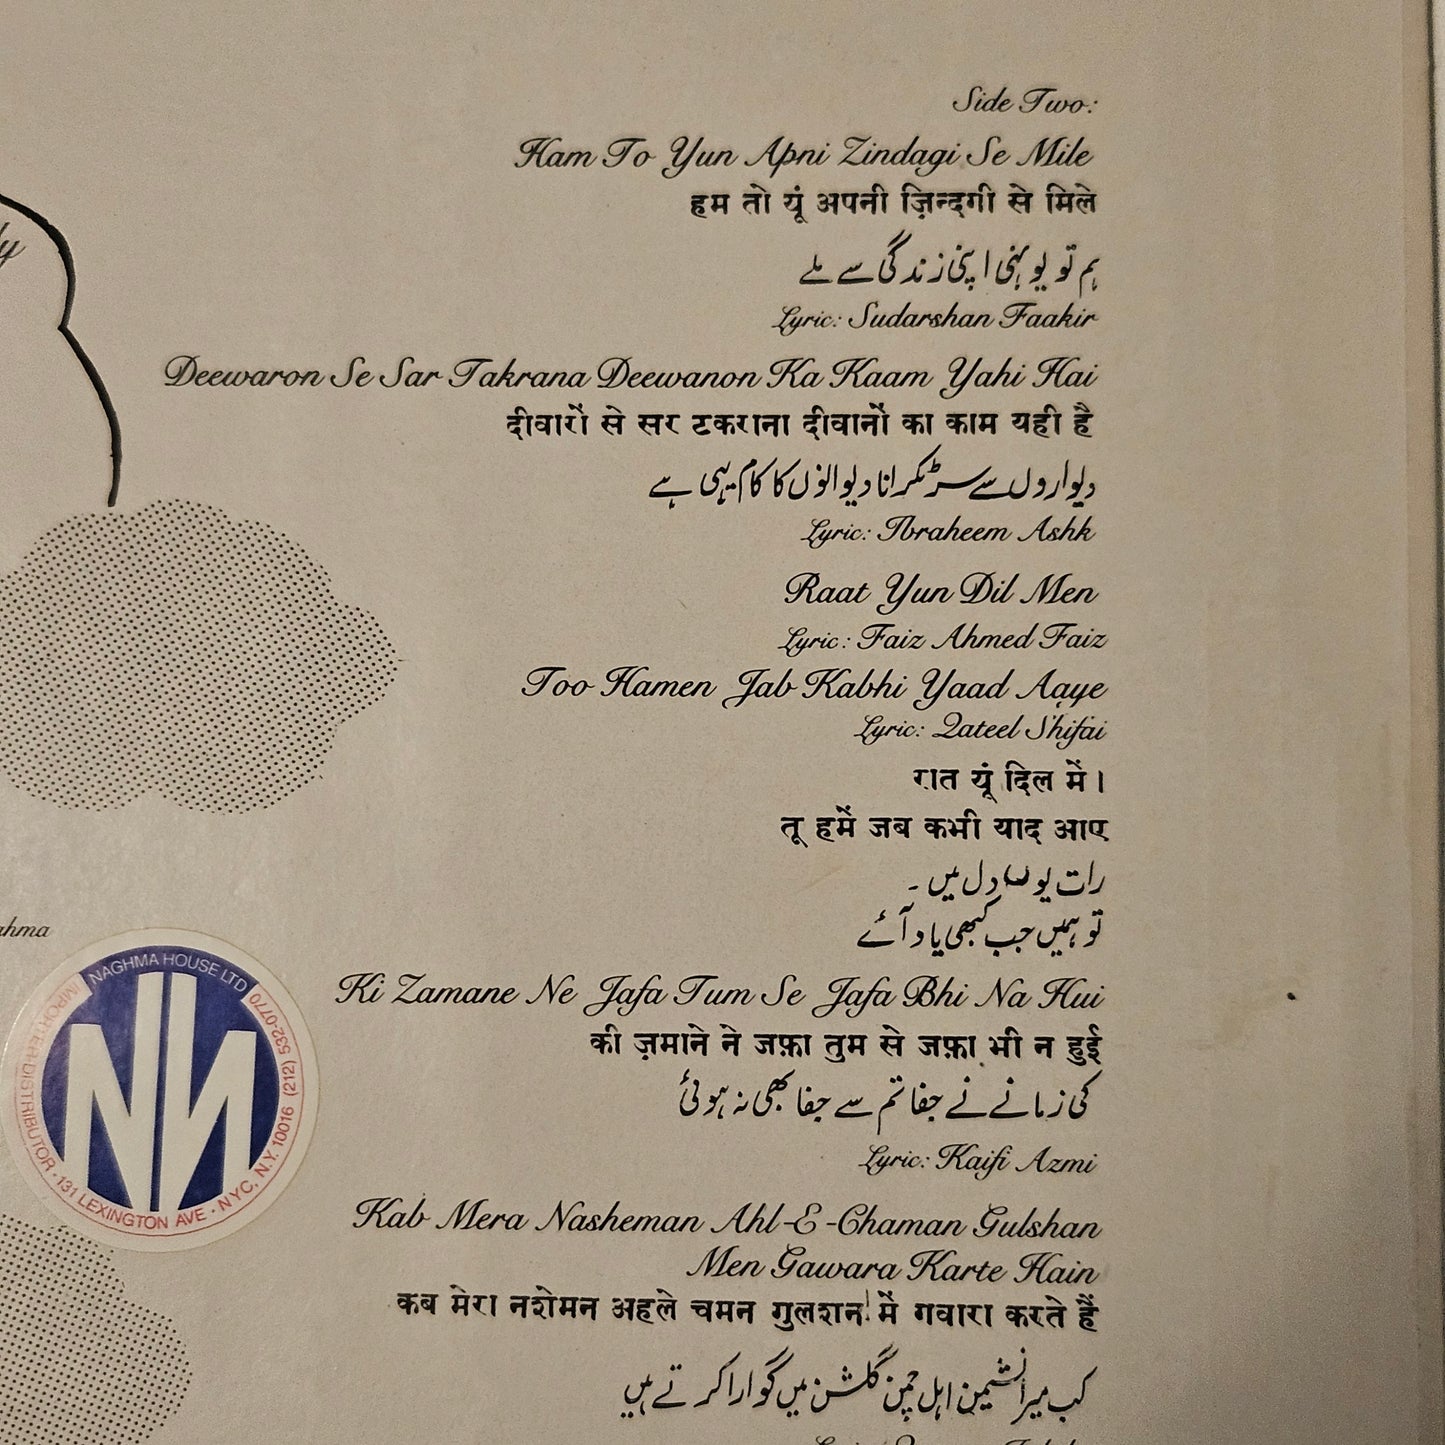 Side Two:
Ham To Yun Apni Zindagi Se Mile
हम तो यूं अपनी ज़िन्दगी से मिले
ہم تو یو ہنی اپنی زندگی سے ملے
Lyric: Sudarshan Faakir
Deewaron Se Sar Takrana Deewanon Ka Kaam Yahi Hai
दीवारों से सर टकराना दीवानों का काम यही है
دیواروں سے سر ٹکرانا دیوانوں کا کام یہی ہے
Lyric: Ibraheem Ashk
Raat Yun Dil Men
Lyric: Faiz Ahmed Faiz
Too Hamen Jab Kabhi Yaad Aaye
Lyric: Qateel Shifai
रात यूं दिल में।
तू हमें जब कभी याद आए
رات یوں دل میں ۔
تو ہمیں جب کبھی یاد آئے
Ki Zamane Ne Jafa Tum Se Jafa Bhi Na Hui
की ज़माने ने जफ़ा तुम से जफ़ा भी न हुई
کی زمانے نے جفا تم سے جفا بھی نہ ہوئی
Lyric: Kaifi Azmi
Kab Mera Nasheman Ahl-E-Chaman Gulshan
Men Gawara Karte Hain
कब मेरा नशेमन अहले चमन गुलशन में गवारा करते हैं
کب میرا نشیمن اہل چمن گلشن میں گوارا کرتے ہیں
NAGHMA HOUSE LTD
IMPORTER·DISTRIBUTOR · 131 LEXINGTON AVE · NYC, N.Y. 10016 (212) 532-0770
NN